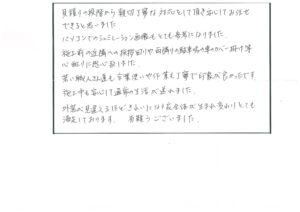 見積りの段階から親切丁寧な対応をして頂き安心してお任せ
できると思いました
パソコンでのシュミレーション画像もとても参考になりました。
施工前の近隣への挨拶回りや両隣りの駐車場の車のカバー掛け等
心配りに感心しました。
若い職人さん達も言葉使いや作業も丁寧で印象が良かったです
施工中も安心して通常の生活が送れました。
外装が見違えるほどきれいになり家全体が生まれ変わりとても
満足しております。 有難うございました。